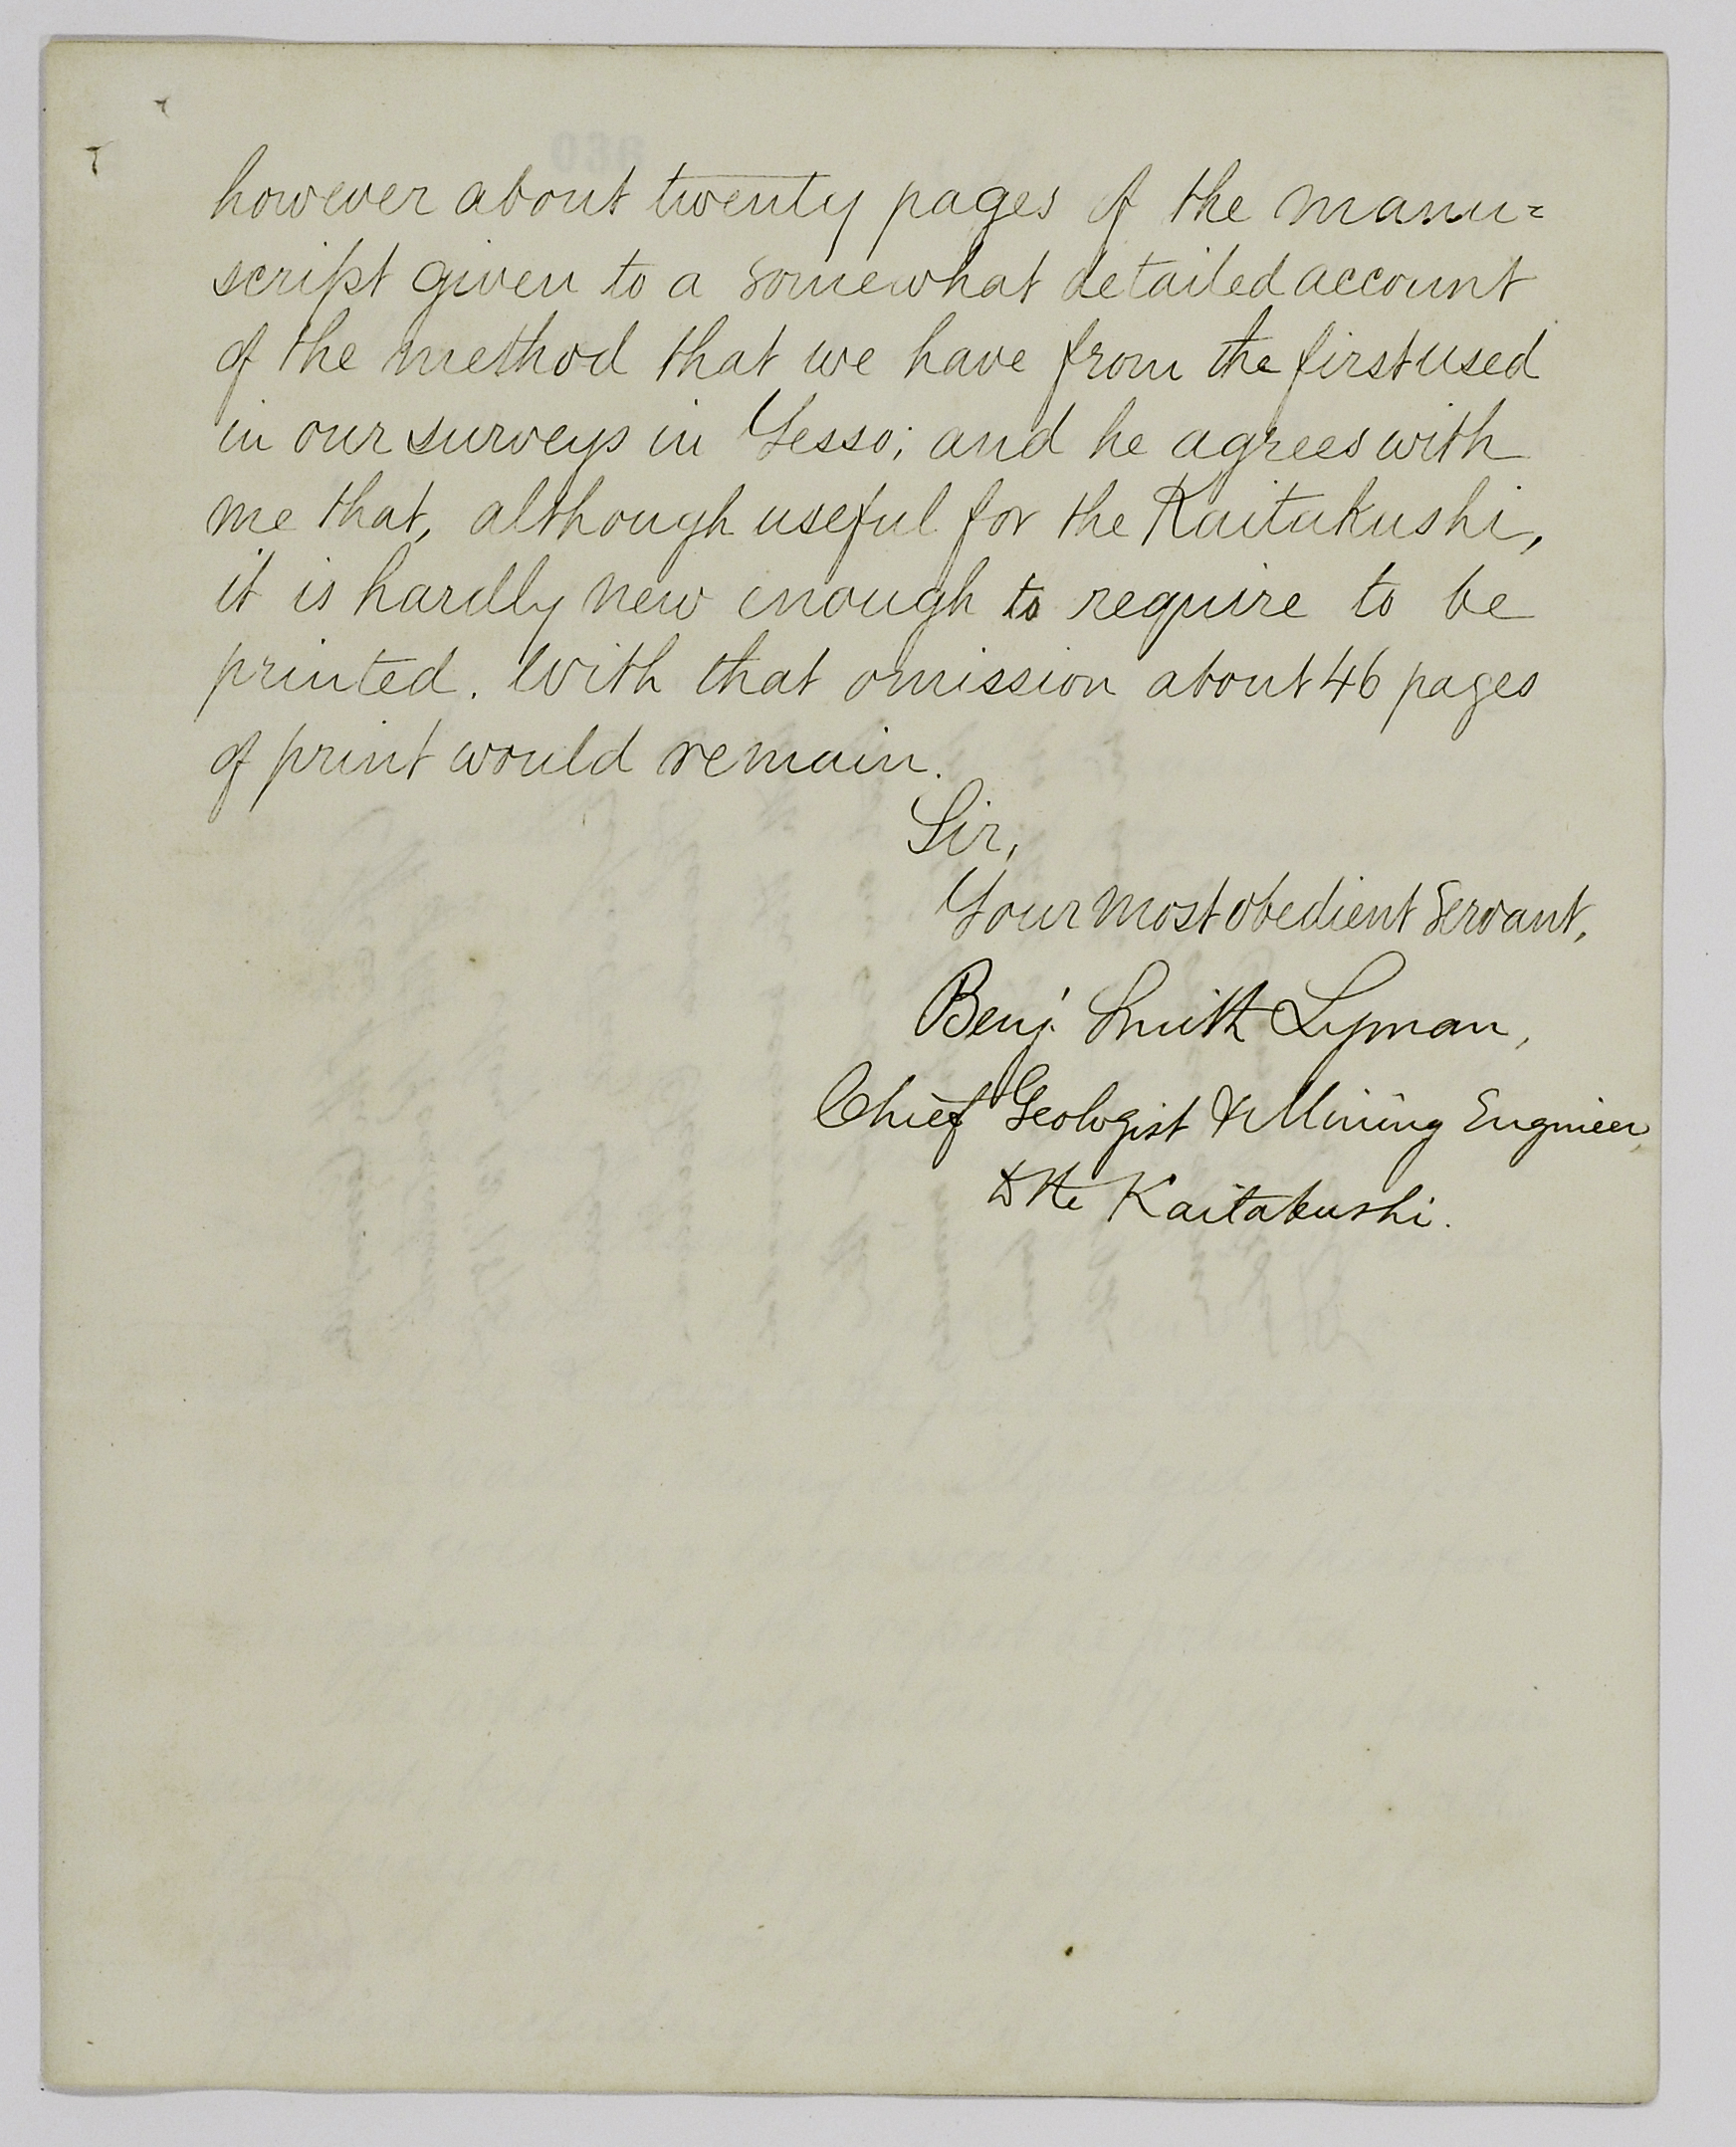 however about twenty pages of the manu=
script given to a somewhat detailed account
of the method that we have from the first used
in our surveys in Yesso; and he agrees with
me that, although useful for the Kaitakushi,
it is hardly new enough to require to be
printed. With that omission about 46 pages
of print would remain.
Sir,
Your most obedient Servant,
Benj. Smith Lyman,
Chief Geologist & Mining Engineer
to the Kaitakushi.